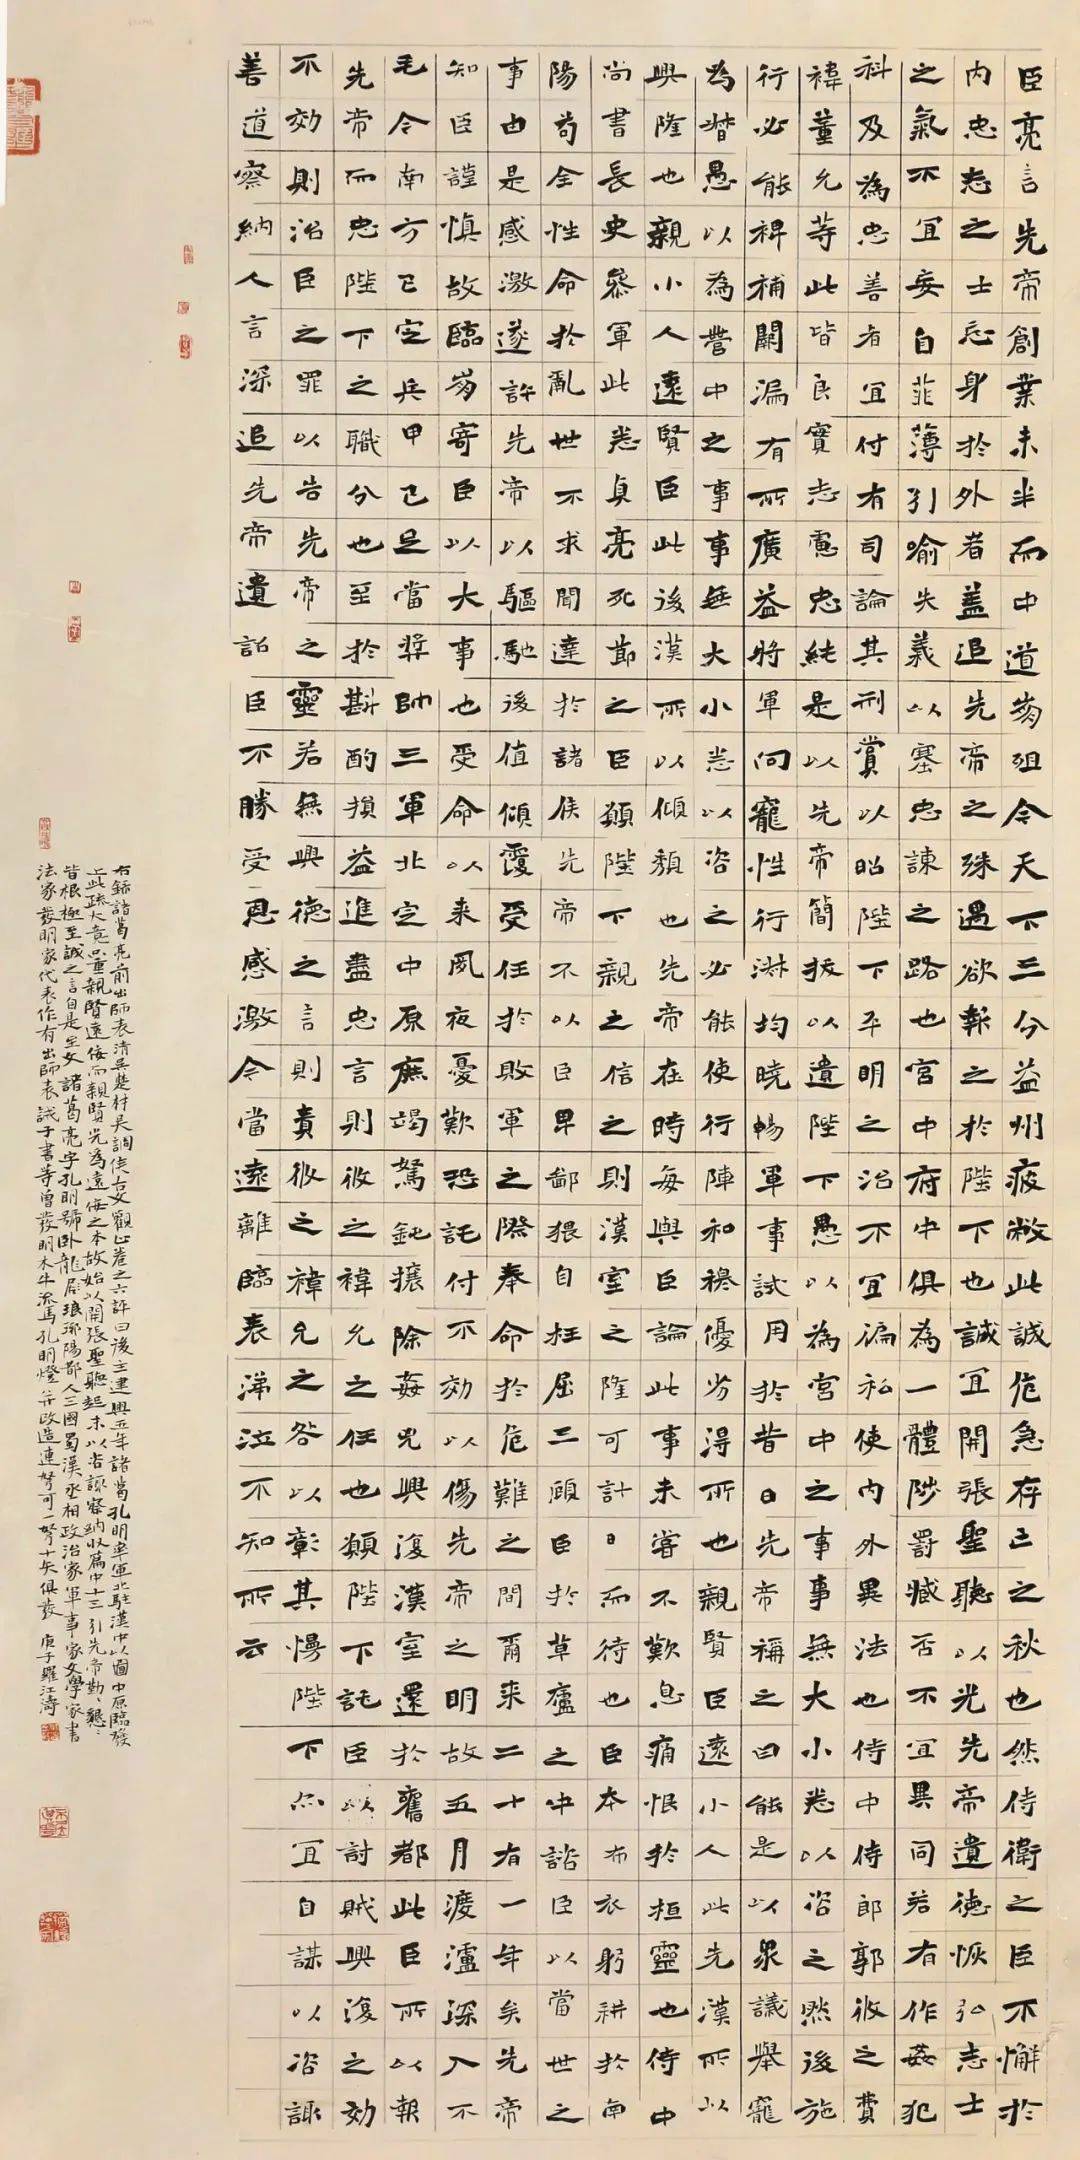 臣亮言先帝創業未半而中道崩殂今天下三分益州疲敝此誠危急存亡之秋也然侍衛之臣不懈於
內忠志之士忘身於外者蓋追先帝之殊遇欲報之於陛下也誠宜開張聖聽以光先帝遺德恢弘志士
之氣不宜妄自菲薄引喻失義以塞忠諫之路也宮中府中俱為一體陟罰臧否不宜異同若有作姦犯
科及為忠善者宜付有司論其刑賞以昭陛下平明之治不宜偏私使內外異法也侍中侍郎郭攸之費
禕董允等此皆良實志慮忠純是以先帝簡拔以遺陛下愚以為宮中之事事無大小悉以咨之然後施
行必能裨補闕漏有所廣益將軍向寵性行淑均曉暢軍事試用於昔日先帝稱之曰能是以眾議舉寵
為督愚以為營中之事事無大小悉以咨之必能使行陣和穆優劣得所也親賢臣遠小人此先漢所以
興隆也親小人遠賢臣此後漢所以傾頹也先帝在時每與臣論此事未嘗不歎息痛恨於桓靈也侍中
尚書長史參軍此悉貞亮死節之臣願陛下親之信之則漢室之隆可計日而待也臣本布衣躬耕於南
陽苟全性命於亂世不求聞達於諸侯先帝不以臣卑鄙猥自枉屈三顧臣於草廬之中諮臣以當世之
事由是感激遂許先帝以驅馳後值傾覆受任於敗軍之際奉命於危難之間爾來二十有一年矣先帝
知臣謹慎故臨崩寄臣以大事也受命以來夙夜憂歎恐託付不効以傷先帝之明故五月渡瀘深入不
毛今南方已定兵甲已足當獎帥三軍北定中原庶竭駑鈍攘除姦兇興復漢室還於舊都此臣所以報
先帝而忠陛下之職分也至於斟酌損益進盡忠言則攸之禕允之任也願陛下託臣以討賊興復之効
不効則治臣之罪以告先帝之靈若無興德之言則責攸之禕允之咎以彰其慢陛下亦宜自謀以咨諏
善道察納人言深追先帝遺詔臣不勝受恩感激今當遠離臨表涕泣不知所云
右錄諸葛亮前出師表清吳楚材吳調侯古文觀止卷之六評曰後主建興五年諸葛孔明率軍北駐漢中以圖中原臨發
上此疏大意只重親賢遠佞而親賢尤為遠佞之本故始以開張聖聽起末以咨諏察納收篇中十三引先帝勤勤懇懇
皆根極至誠之言自是至文諸葛亮字孔明號臥龍居琅琊陽都人三國蜀漢丞相政治家軍事家文學家書
法家發明家代表作有出師表誡子書等曾發明木牛流馬孔明燈并改造連弩可一弩十矢俱發 庚子羅江濤